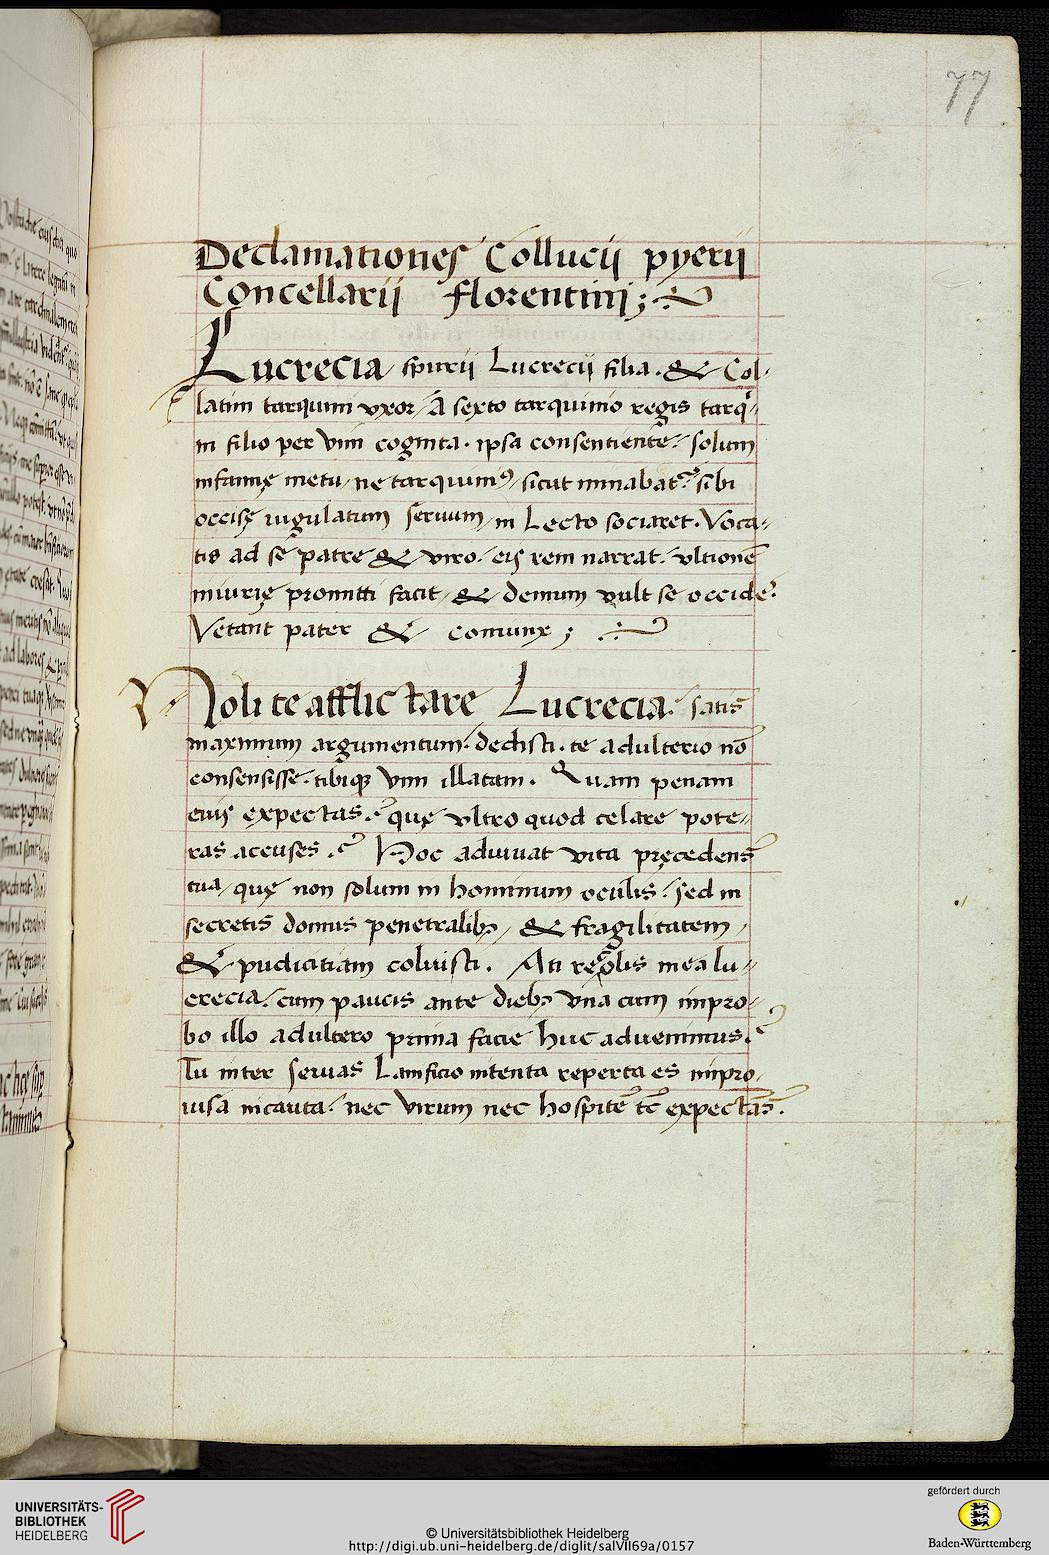 77
Declamationes Collucij pyerij
Concellarij florentinj;
Lucrecia / spurij Lucrecij filia . & Col-
latini tarquinii vxor / A sexto tarquinio regis tarq̄-
ni filio per vim cognita . ipsa consentiente / solum
infamię metu / ne tarquiniꝰ / sicut minabat᷑ sibi
occisę iugulatum seruum / in Lecto sociaret . Voca-
tis ad se patre & viro . eis rem narrat . vltionē
iniurię promitti facit / & demum vult se occide᷑
Vetant pater & coniunx ;
Noli te afflictare Lucrecia . satis
maximum argumentum . dedisti . te adulterio nō
consensisse . tibiqꝫ vim illatam . Quam penam
eius expectas . que vltro quod celare pote-
ras accuses . Hoc adiuuat vita pręcedens
tua / quę non solum in hominum oculis . sed in
secretis domus penetralibꝫ / & fragilitatem /
& pudicitiam coluisti . An mea lu-
crecia / cum paucis ante diebꝫ vna cum impro-
bo illo adultero prima facie huc aduenimus .
Tu inter seruas Lanificio intenta reperta es impro-
uisa incauta . nec virum nec hospitē tē expectans .
UNIVERSITÄTS-
BIBLIOTHEK
HEIDELBERG
© Universitätsbibliothek Heidelberg
http://digi.ub.uni-heidelberg.de/diglit/salVII69a/0157
gefördert durch
Baden-Württemberg